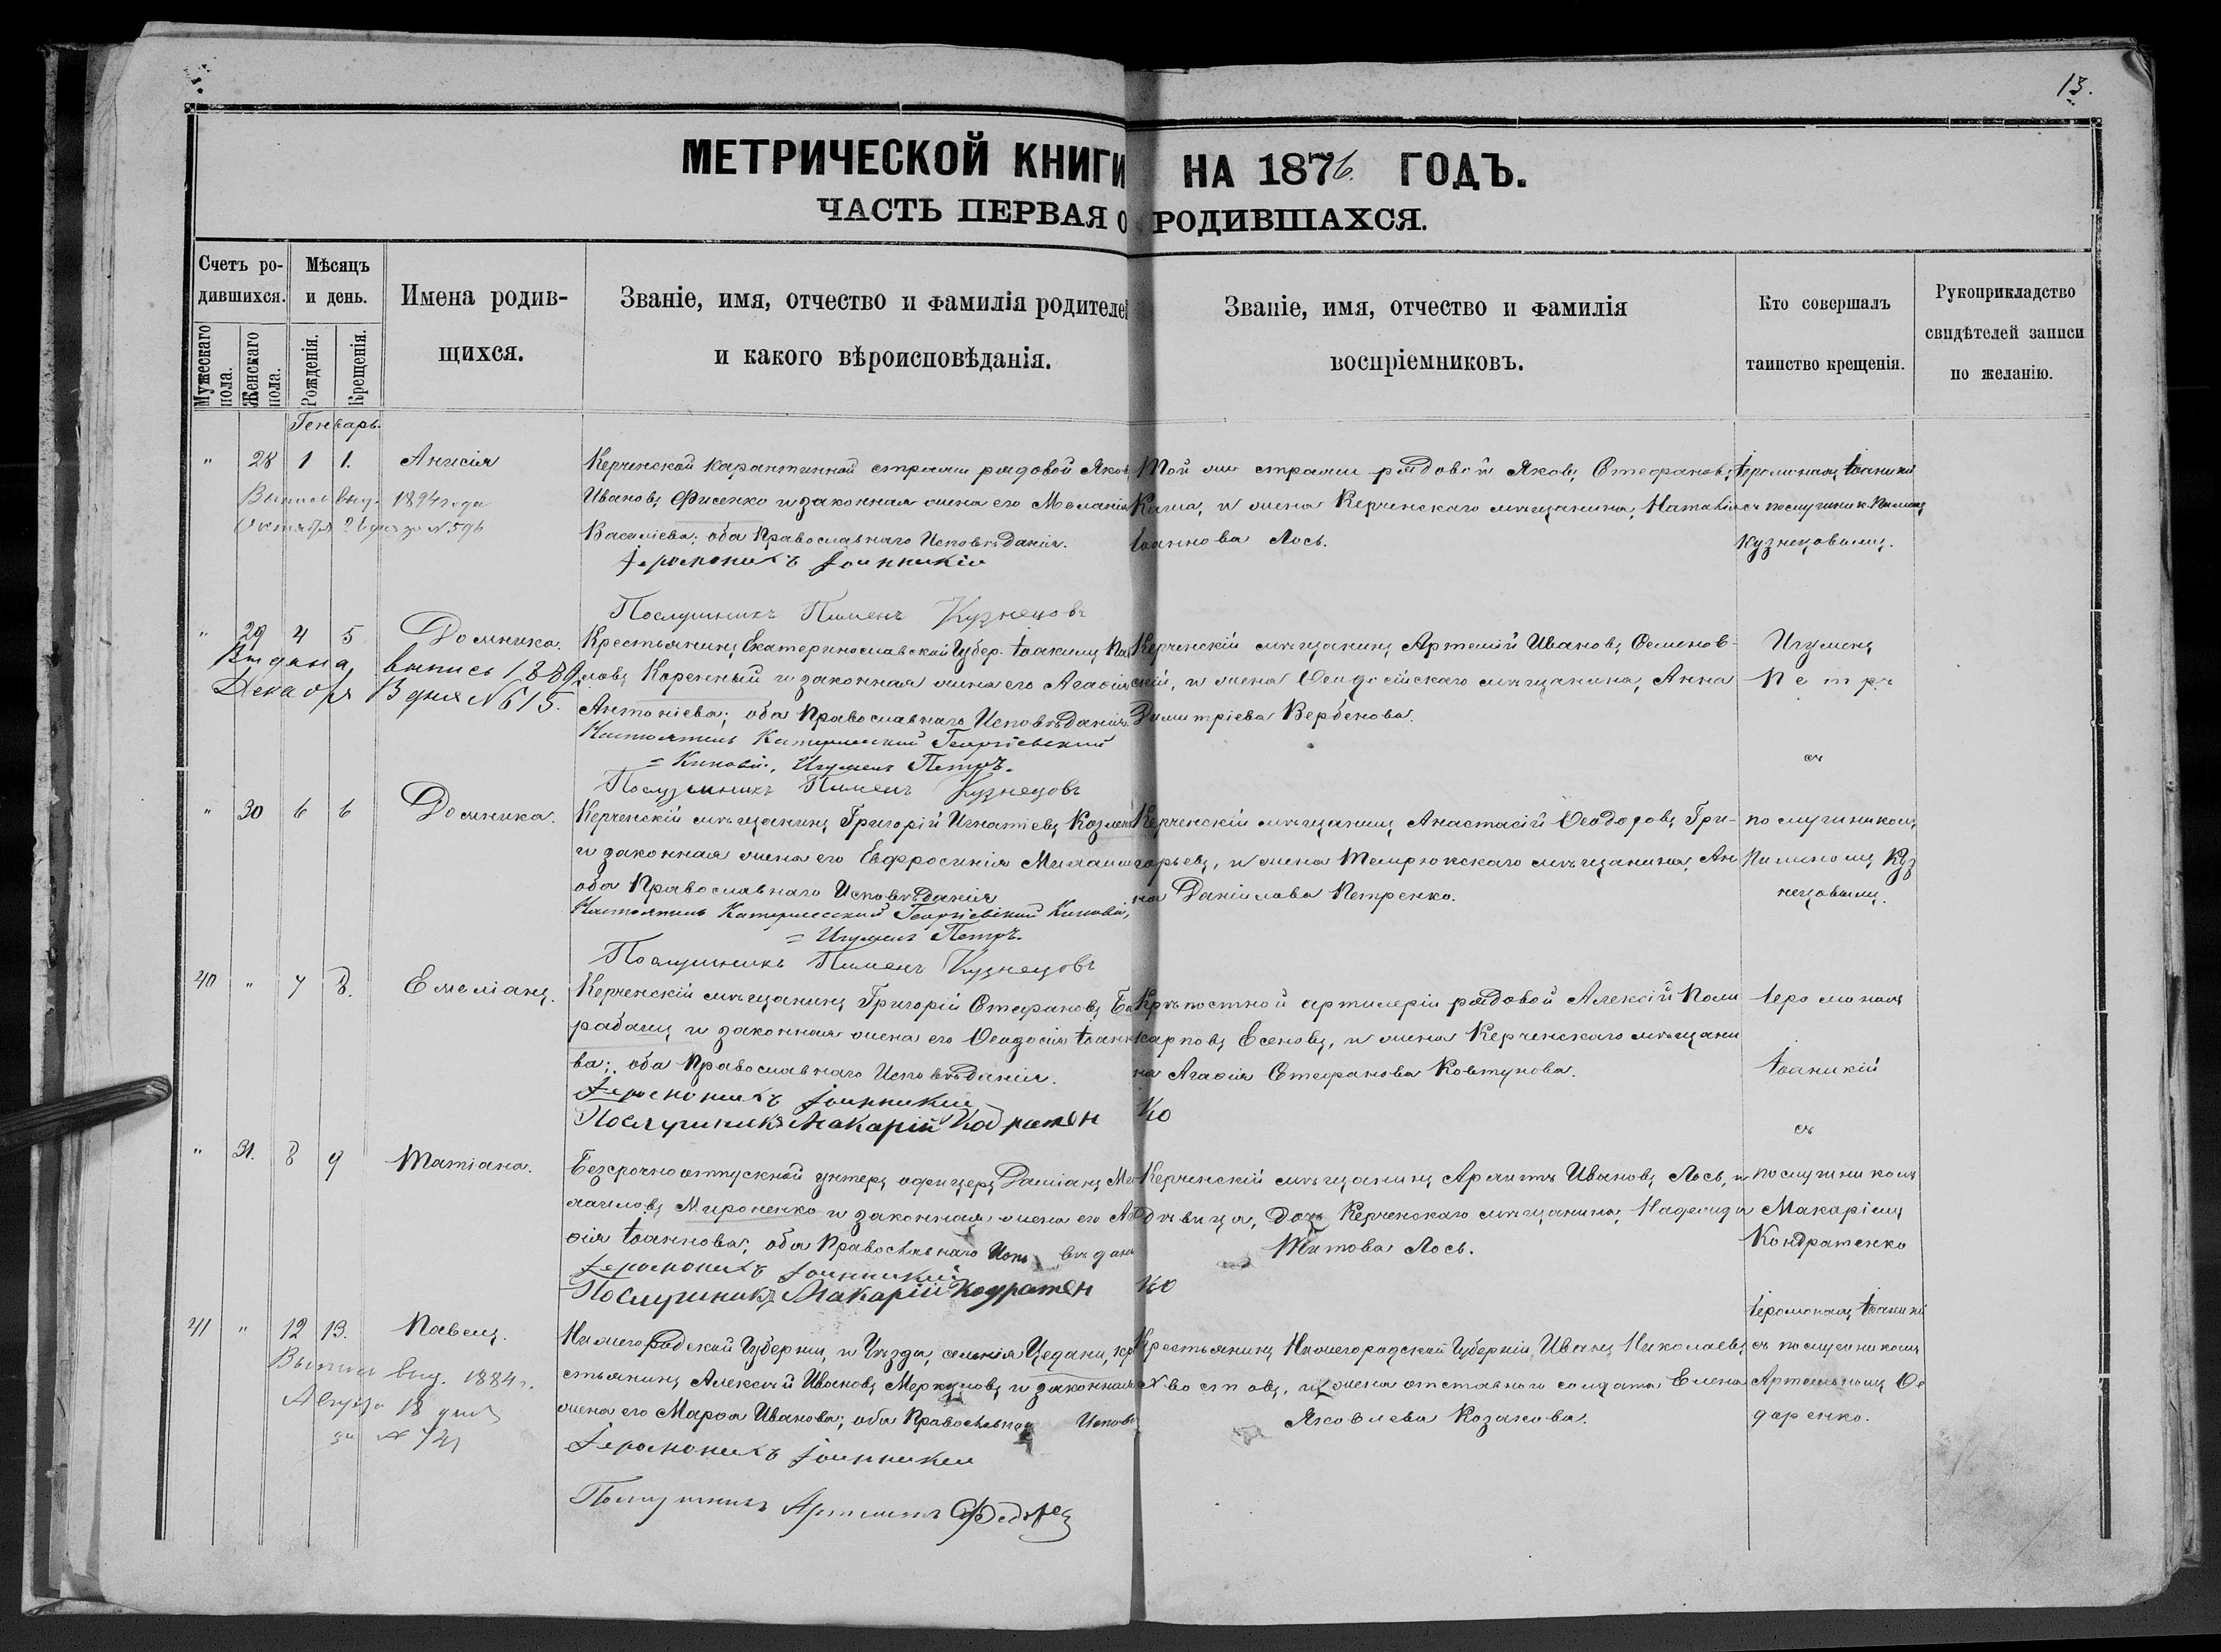 13.
МЕТРИЧЕСКОЙ КНИГИ НА 1876. ГОДЪ.
ЧАСТЬ ПЕРВАЯ О РОДИВШАХСЯ.
Счетъ ро-
дившихся.
Мужескаго пола.
Женскаго пола.
Мѣсяцъ
и день.
Рожденія.
Крещенія.
Имена родив-
щихся.
Званіе, имя, отчество и фамилія родителей
и какого вѣроисповѣданія.
Званіе, имя, отчество и фамилія
воспріемниковъ.
Кто совершалъ
таинство крещенія.
Рукоприкладство
свидѣтелей записи
по желанію.
Генварь.
" 28 1 1. Анисія
Выпись выд. 1894 года
Октября 26 дня за № 596
Керченской карантинной стражи рядовой Яковъ
Ивановъ Фисенко и законная жена его Меланія
Василіева; оба Православнаго Исповѣданія.
Іеромонахъ Іоанникій
Послушникъ Пименъ Кузнецовъ
Той же стражи рядовой Яковъ Стефановъ
Кима, и жена Керченскаго мѣщанина, Наталія
Іоаннова Лось.
Іеромонахъ Іоаникій
съ послушник. Пименъ
Кузнецовымъ.
" 29 4 5 Домника.
Выдана выпись 1889
Декабря 13 дня № 615.
Крестьянинъ Екатеринославской Губер. Іоакимъ Пав
ловъ Коренный и законная жена его Агафія
Антоніева; оба Православнаго Исповѣданія.
Настоятель Катерлесской Георгіевской
= Киновіи, Игуменъ Петръ.
Послушникъ Пименъ Кузнецовъ
Керченскій мѣщанинъ Артемій Ивановъ Семенов-
скій, и жена Ѳеодосійскаго мѣщанина, Анна
Димитріева Вербенова.
Игуменъ
Петръ
съ
" 30 6 6 Домника.
Керченскій мѣщанинъ Григорій Игнатіевъ Козленк
и законная жена его Евфросинія
оба Православнаго Исповѣданія
Настоятель Катерлесской Георгіевской Киновіи,
= Игуменъ Петръ.
Послушникъ Пименъ Кузнецовъ
Керченскій мѣщанинъ Анастасій Ѳеодоровъ Гри-
горьевъ, и жена Темрюкскаго мѣщанина, Ан
на Даніилова Петренко.
послушникомъ
Пименомъ Куз
нецовымъ.
40 " 7 8. Емеліанъ.
Керченскій мѣщанинъ Григорій Стефановъ Ба
рабашъ и законная жена его Ѳеодосія Іоанно
ва; оба Православнаго Исповѣданія.
Іеромонахъ Іоанникій
Послушникъ Макарій Кодратенко
Крѣпостной артилеріи рядовой Алексій Поли
карповъ Есеновъ, и жена Керченскаго мѣщани
на Агафія Стефанова Ковтунова.
Іеромонахъ
Іоаникій
съ
" 31. 8 9 Татіана.
Безсрочноотпускной унтеръ офицеръ Даміанъ
Мироненко и законная жена его
Іоаннова; оба Православнаго Исповѣдані
Іеромонахъ Іоанникій
Послушникъ Макарій Кодратенко
Керченскій мѣщанинъ Ивановъ Лось, и
дѣвица, дочь Керченскаго мѣщанина, Надежда
Титова Лось.
послушникомъ
Макаріемъ
Кондратенко
41 " 12 13. Павелъ.
Выпись выд. 1884 г.
Августа 18 дня
за № 721
Нижегородской Губерніи, и Уѣзда, селенія Цедани, кре
стьянинъ Алексѣй Ивановъ Меркуловъ и законная
жена его Марѳа Иванова; оба Православнаго Исповѣ
Іеромонахъ Іоанникій
Послушникъ Артемонъ
Крестьянинъ Нижегородской Губерніи, Иванъ Николаевъ
Хвостовъ, и жена отставнаго солдата Елена
Яковлева Козакова.
Іеромонахъ Іоаникій
съ послушникомъ
Артемономъ Ѳе
доренко.